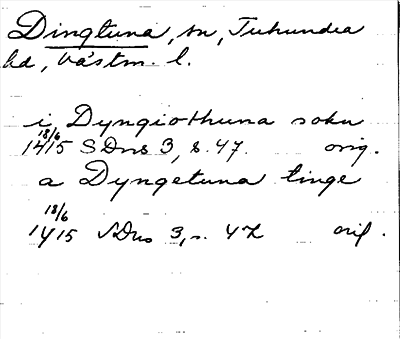 Dingtuna, sn, Tuhundra
hd, Västm. l.
i Dyngiothuna sokn
18/6
1415 SDns 3, s. 47. orig.
a Dyngetuna tinge
18/6
1415 SDns 3, s. 47 orig.